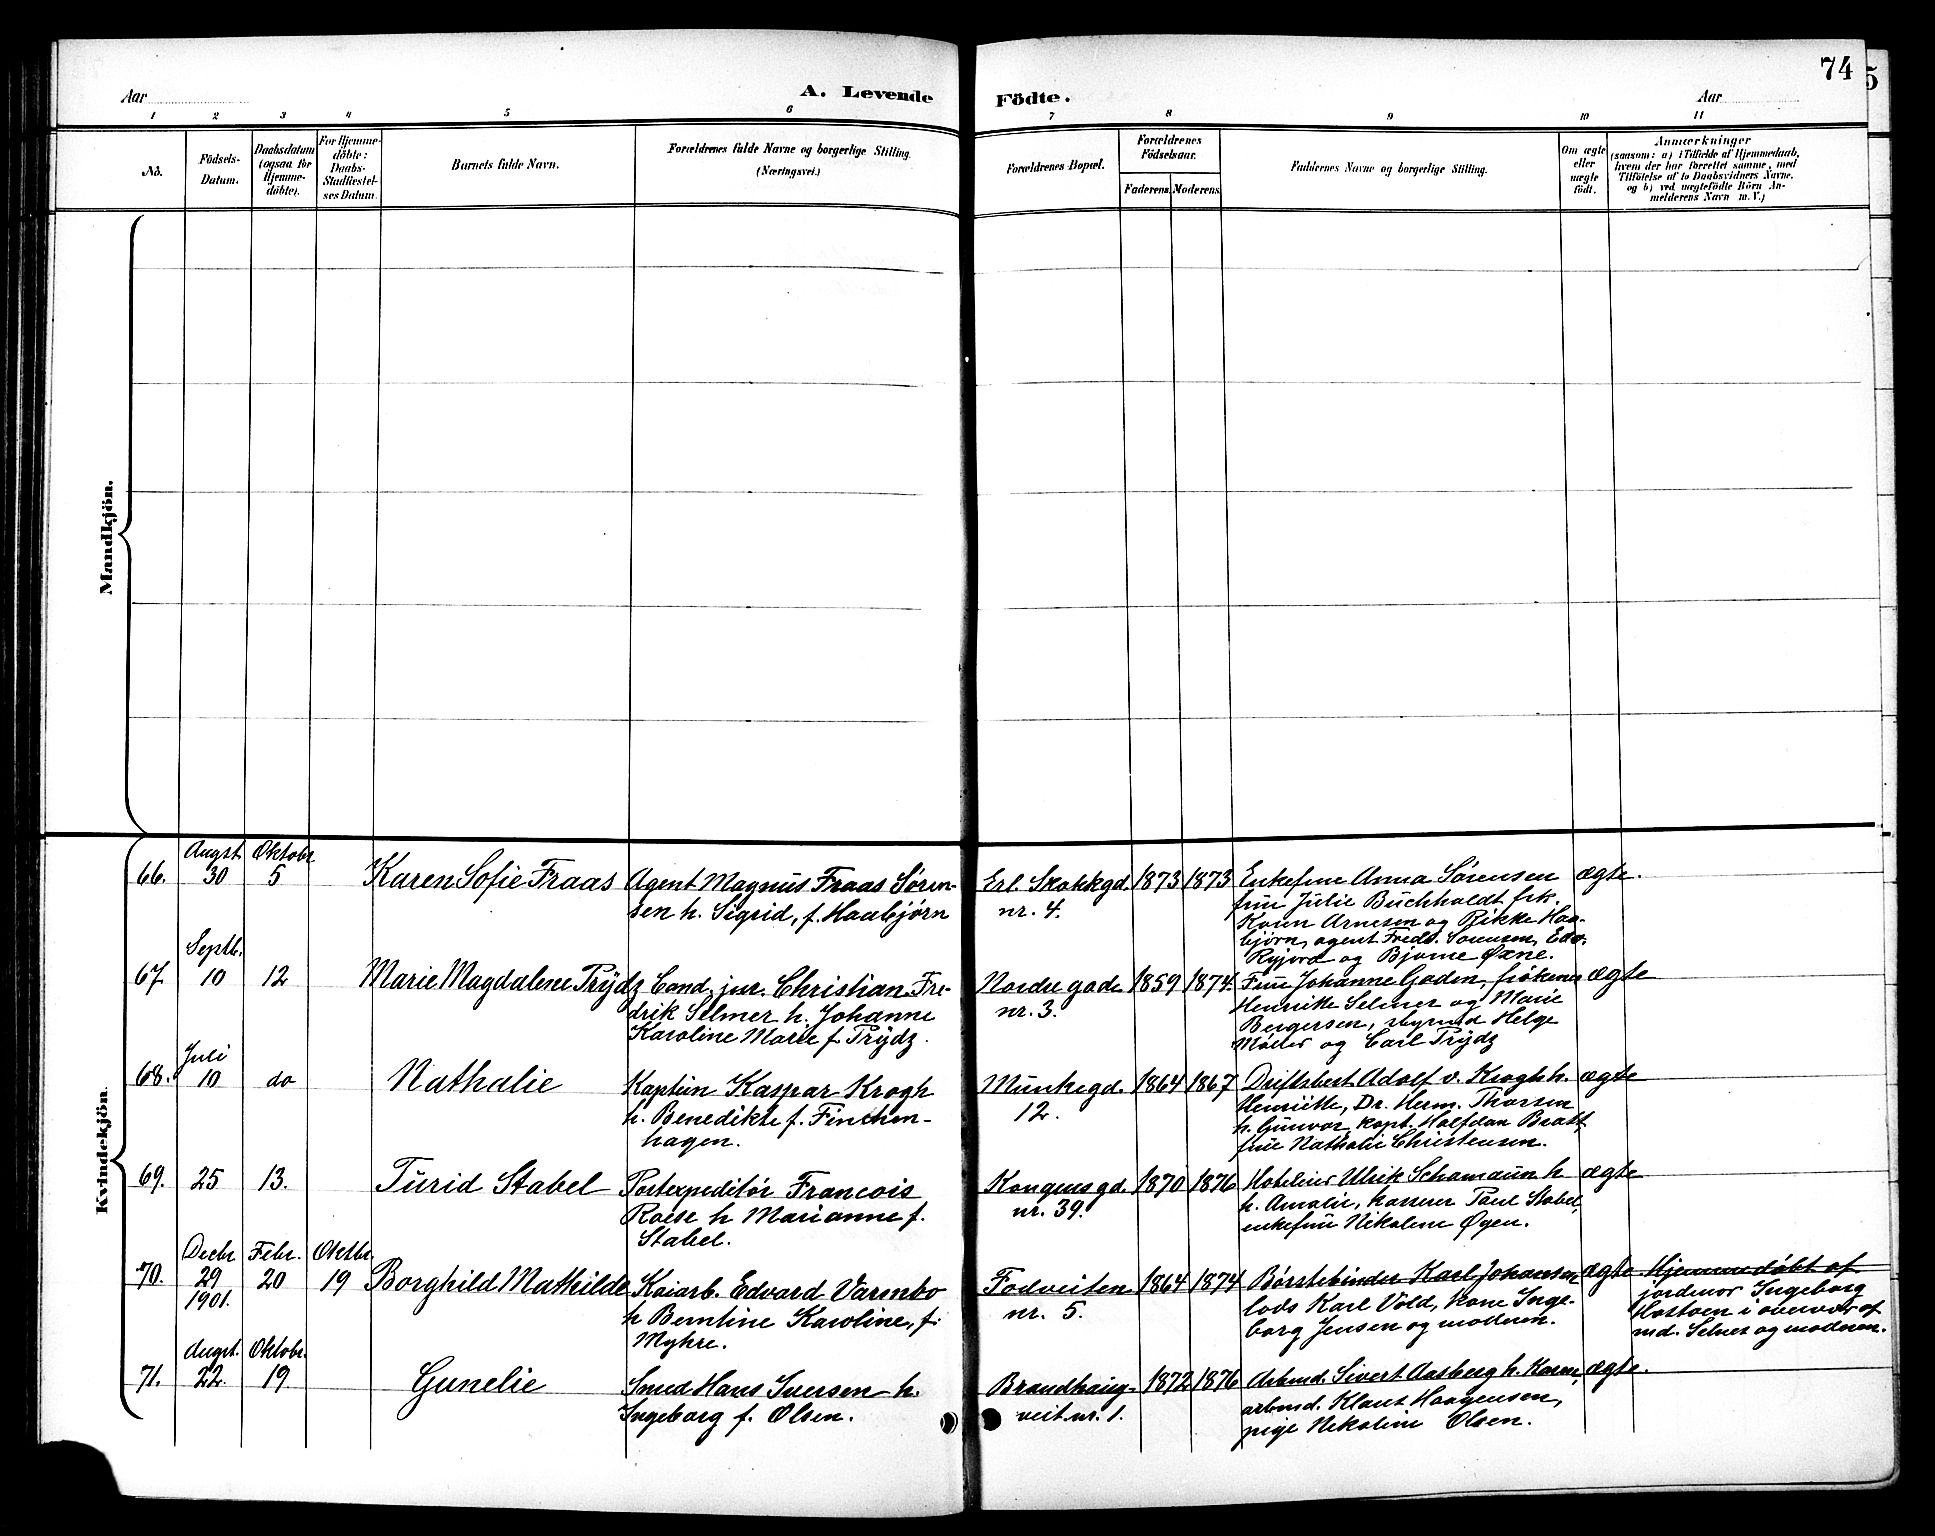 74
5
Aar
A. Levende
Födte.
Aar
1
2
3
4
5
6
7
8
9
10
11
No.
Födsels-
Datum.
Daabsdatum
(ogsaa for
Hjemme-
döbte).
For Hjemme-
döbte:
Daabs-
Stadfæstel-
ses Datum.
Barnets fulde Navn.
Forældrenes fulde Navne og borgerlige Stilling.
(Næringsvei.)
Forældrenes Bopæl.
Forældrenes
Födselsaar.
Faderens.
Moderens.
Faddrenes Navne og borgerlige Stilling.
Om ægte
eller
uægte
födt.
Anmærkninger
(saasom: a) i Tilfælde af Hjemmedaab,
hvem der har forrettet samme, med
Tilföielse af to Daabsvidners Navne,
og b) ved uægtefödte Börn An-
melderens Navn m. V.)
Mandkjön.
Kvindekjön.
66.
Augst
30
Oktobr
5
Karen Sofie Fraas
Agent Magnus Fraas Sören-
sen h. Sigrid, f. Haabjörn
Erl. Skakkgd.
nr. 4.
1873
1873
Enkefrue Anna Sörensen
frue Julie Buchholdt frk.
Karen Arnesen og Rikke Haa-
björn, agent Fredr. Sörensen, Edv.
og Bjarne Öxne.
ægte.
67.
Septb.
10
12
Marie Magdalene Trÿdz
Cand. jur. Christian Fre-
drik Selmer h. Johanne
Karoline Marie f. Trÿdz.
Nordre gade
nr. 3.
1859
1874.
Frue Johanne Gaden, frökener
Henrikke Selmer og Marie
Bergersen, Helge
og Carl Trÿdz
ægte
68.
Juli
10
do
Nathalie
Kaptein Kaspar Krogh
h. Benedikte f. Finchen-
hagen.
Munkegd.
12.
1864
1867
Driftsbest. Adolf v. Krogh h.
Henriette, Dr. Herm. Thorsen
h. Gunvor, kapt. Halfdan Bratt,
frue Nathalie Christensen.
ægte
69.
25
13.
Turid Stabel
Postexpeditör Francois
Roese h Marianne f.
Stabel.
Kongensgd.
nr. 39.
1870
1876
Hotelier Ulrik Schamaun h
h. Amalie, kasserer Paul Stabel,
enkefrue Nikoline Öyen.
ægte
70.
Decbr.
29
1901.
Febr.
20
Oktbr.
19
Borghild Mathilde
Kaiarb. Edvard Varmbo
h Berntine Karoline, f.
Myhre.
Fodveiten
nr. 5.
1864
1874
Börstebinder Karl Johansen
lods Karl Vold, kone Inge-
borg Jensen og moderen.
ægte
Hjemmedöbt af
jordmor Ingeborg
i overvær af
md. Selnes og moderen.
71.
Augst.
22.
Oktobr.
19
Gunelie
Smed Hans Iversen h.
Ingeborg f. Olsen.
Brandhaug-
veit nr. 1.
1872
1876
Arbmd. Sivert Aasberg h. Karen,
arbmd. Klaus Haagensen,
pige Nikoline Olsen.
ægte.